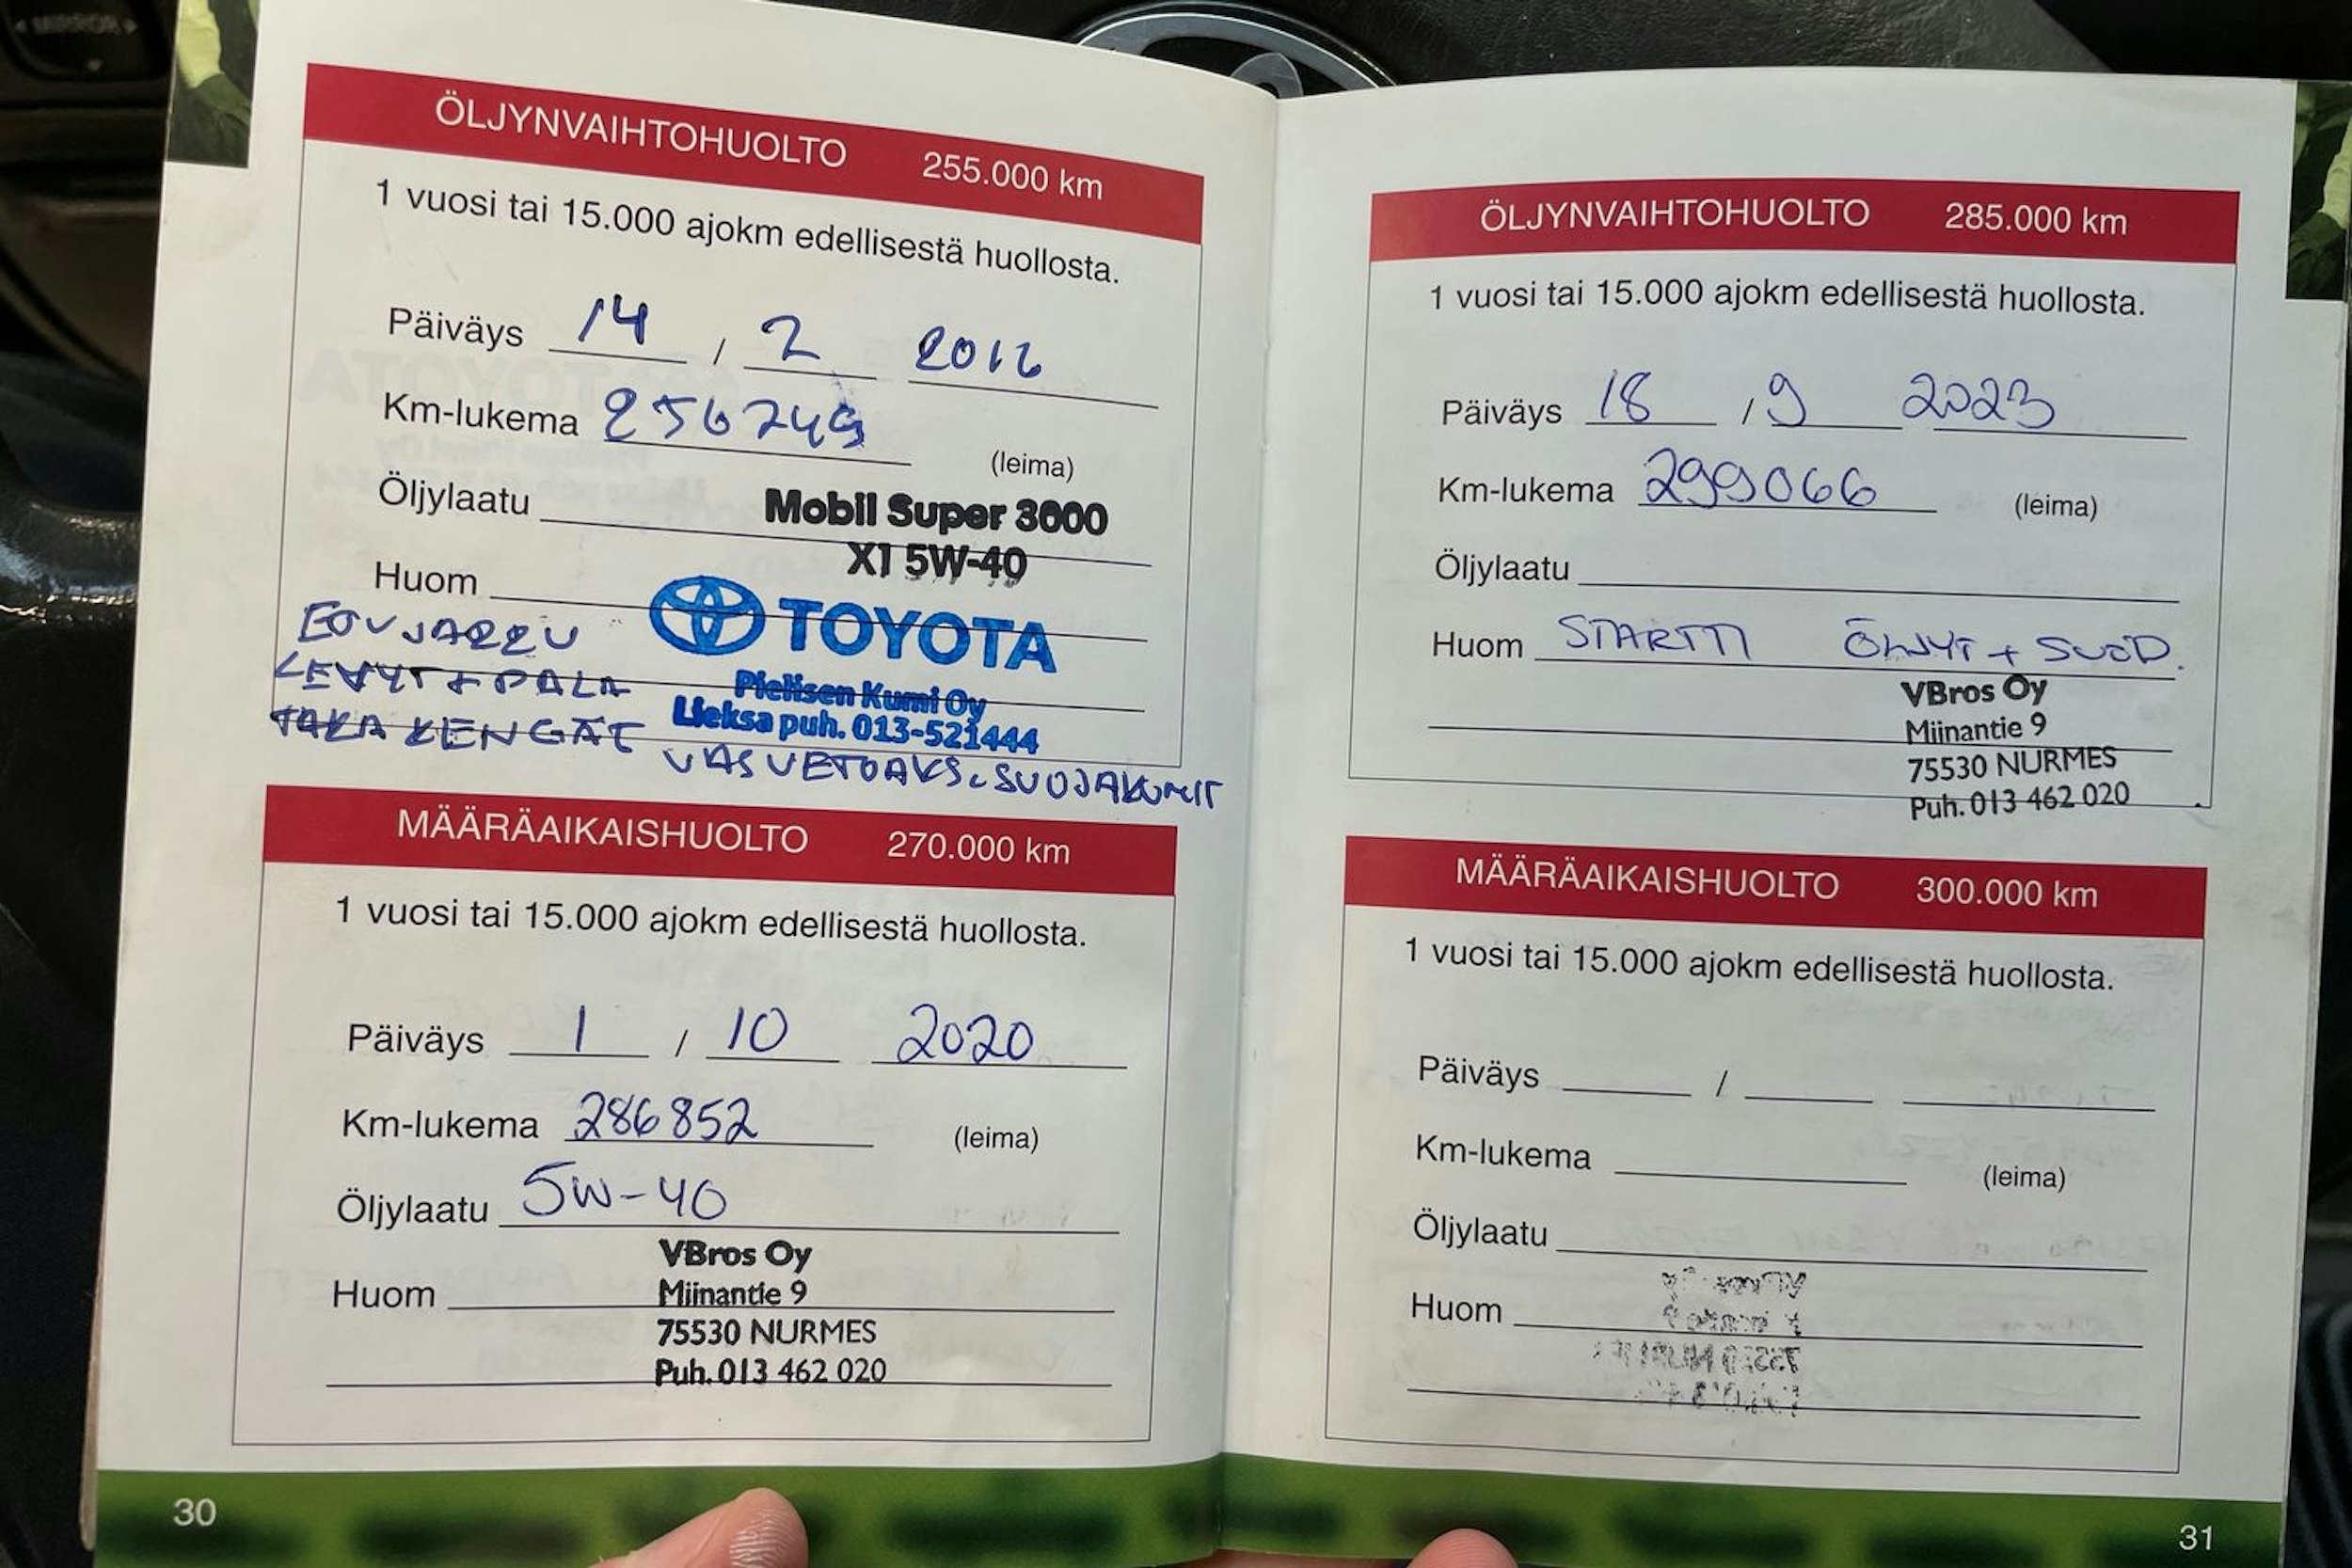 MIRROR
ÖLJYNVAIHTOHUOLTO 255.000 km
1 vuosi tai 15.000 ajokm edellisestä huollosta.
Päiväys 14 / 2 2016
Km-lukema 256749
(leima)
Öljylaatu Mobil Super 3000
X1 5W-40
Huom
TOYOTA
ETUJARRU
LEVYT + PALA
Pielisen Kumi Oy
TAKA KENGÄT
Lieksa puh. 013-521444
VAS VETOAKS. SUOJAKUMIT
MÄÄRÄAIKAISHUOLTO 270.000 km
1 vuosi tai 15.000 ajokm edellisestä huollosta.
Päiväys 1 / 10 2020
Km-lukema 286852
(leima)
Öljylaatu 5W-40
VBros Oy
Huom Miinantie 9
75530 NURMES
Puh. 013 462 020
30
ÖLJYNVAIHTOHUOLTO 285.000 km
1 vuosi tai 15.000 ajokm edellisestä huollosta.
Päiväys 18 / 9 2023
Km-lukema 299066
(leima)
Öljylaatu
Huom STARTTI ÖLJYT + SUOD.
VBros Oy
Miinantie 9
75530 NURMES
Puh. 013 462 020
MÄÄRÄAIKAISHUOLTO 300.000 km
1 vuosi tai 15.000 ajokm edellisestä huollosta.
Päiväys /
Km-lukema
(leima)
Öljylaatu
Huom
31